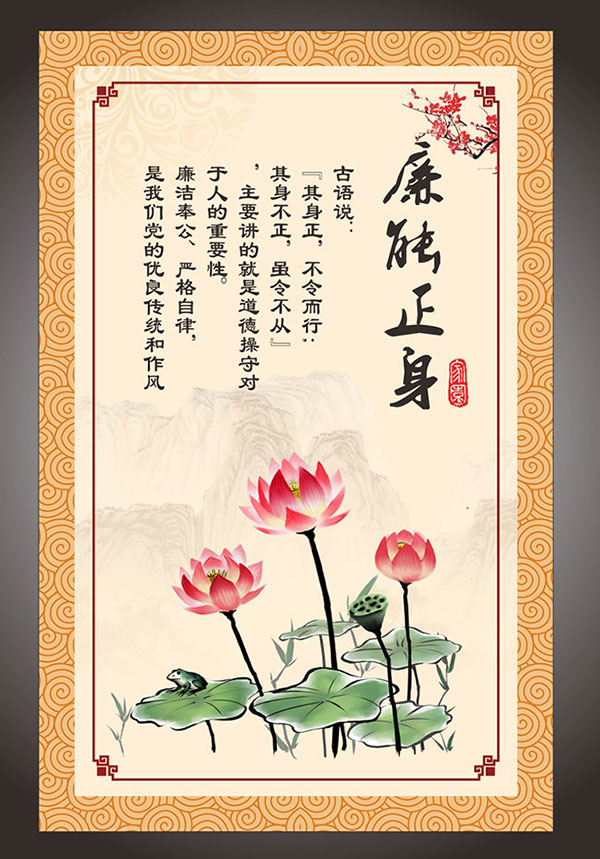 廉能正身
古语说：
『其身正，不令而行；
其身不正，虽令不从』
，主要讲的就是道德操守对
于人的重要性。
廉洁奉公、严格自律，
是我们党的优良传统和作风